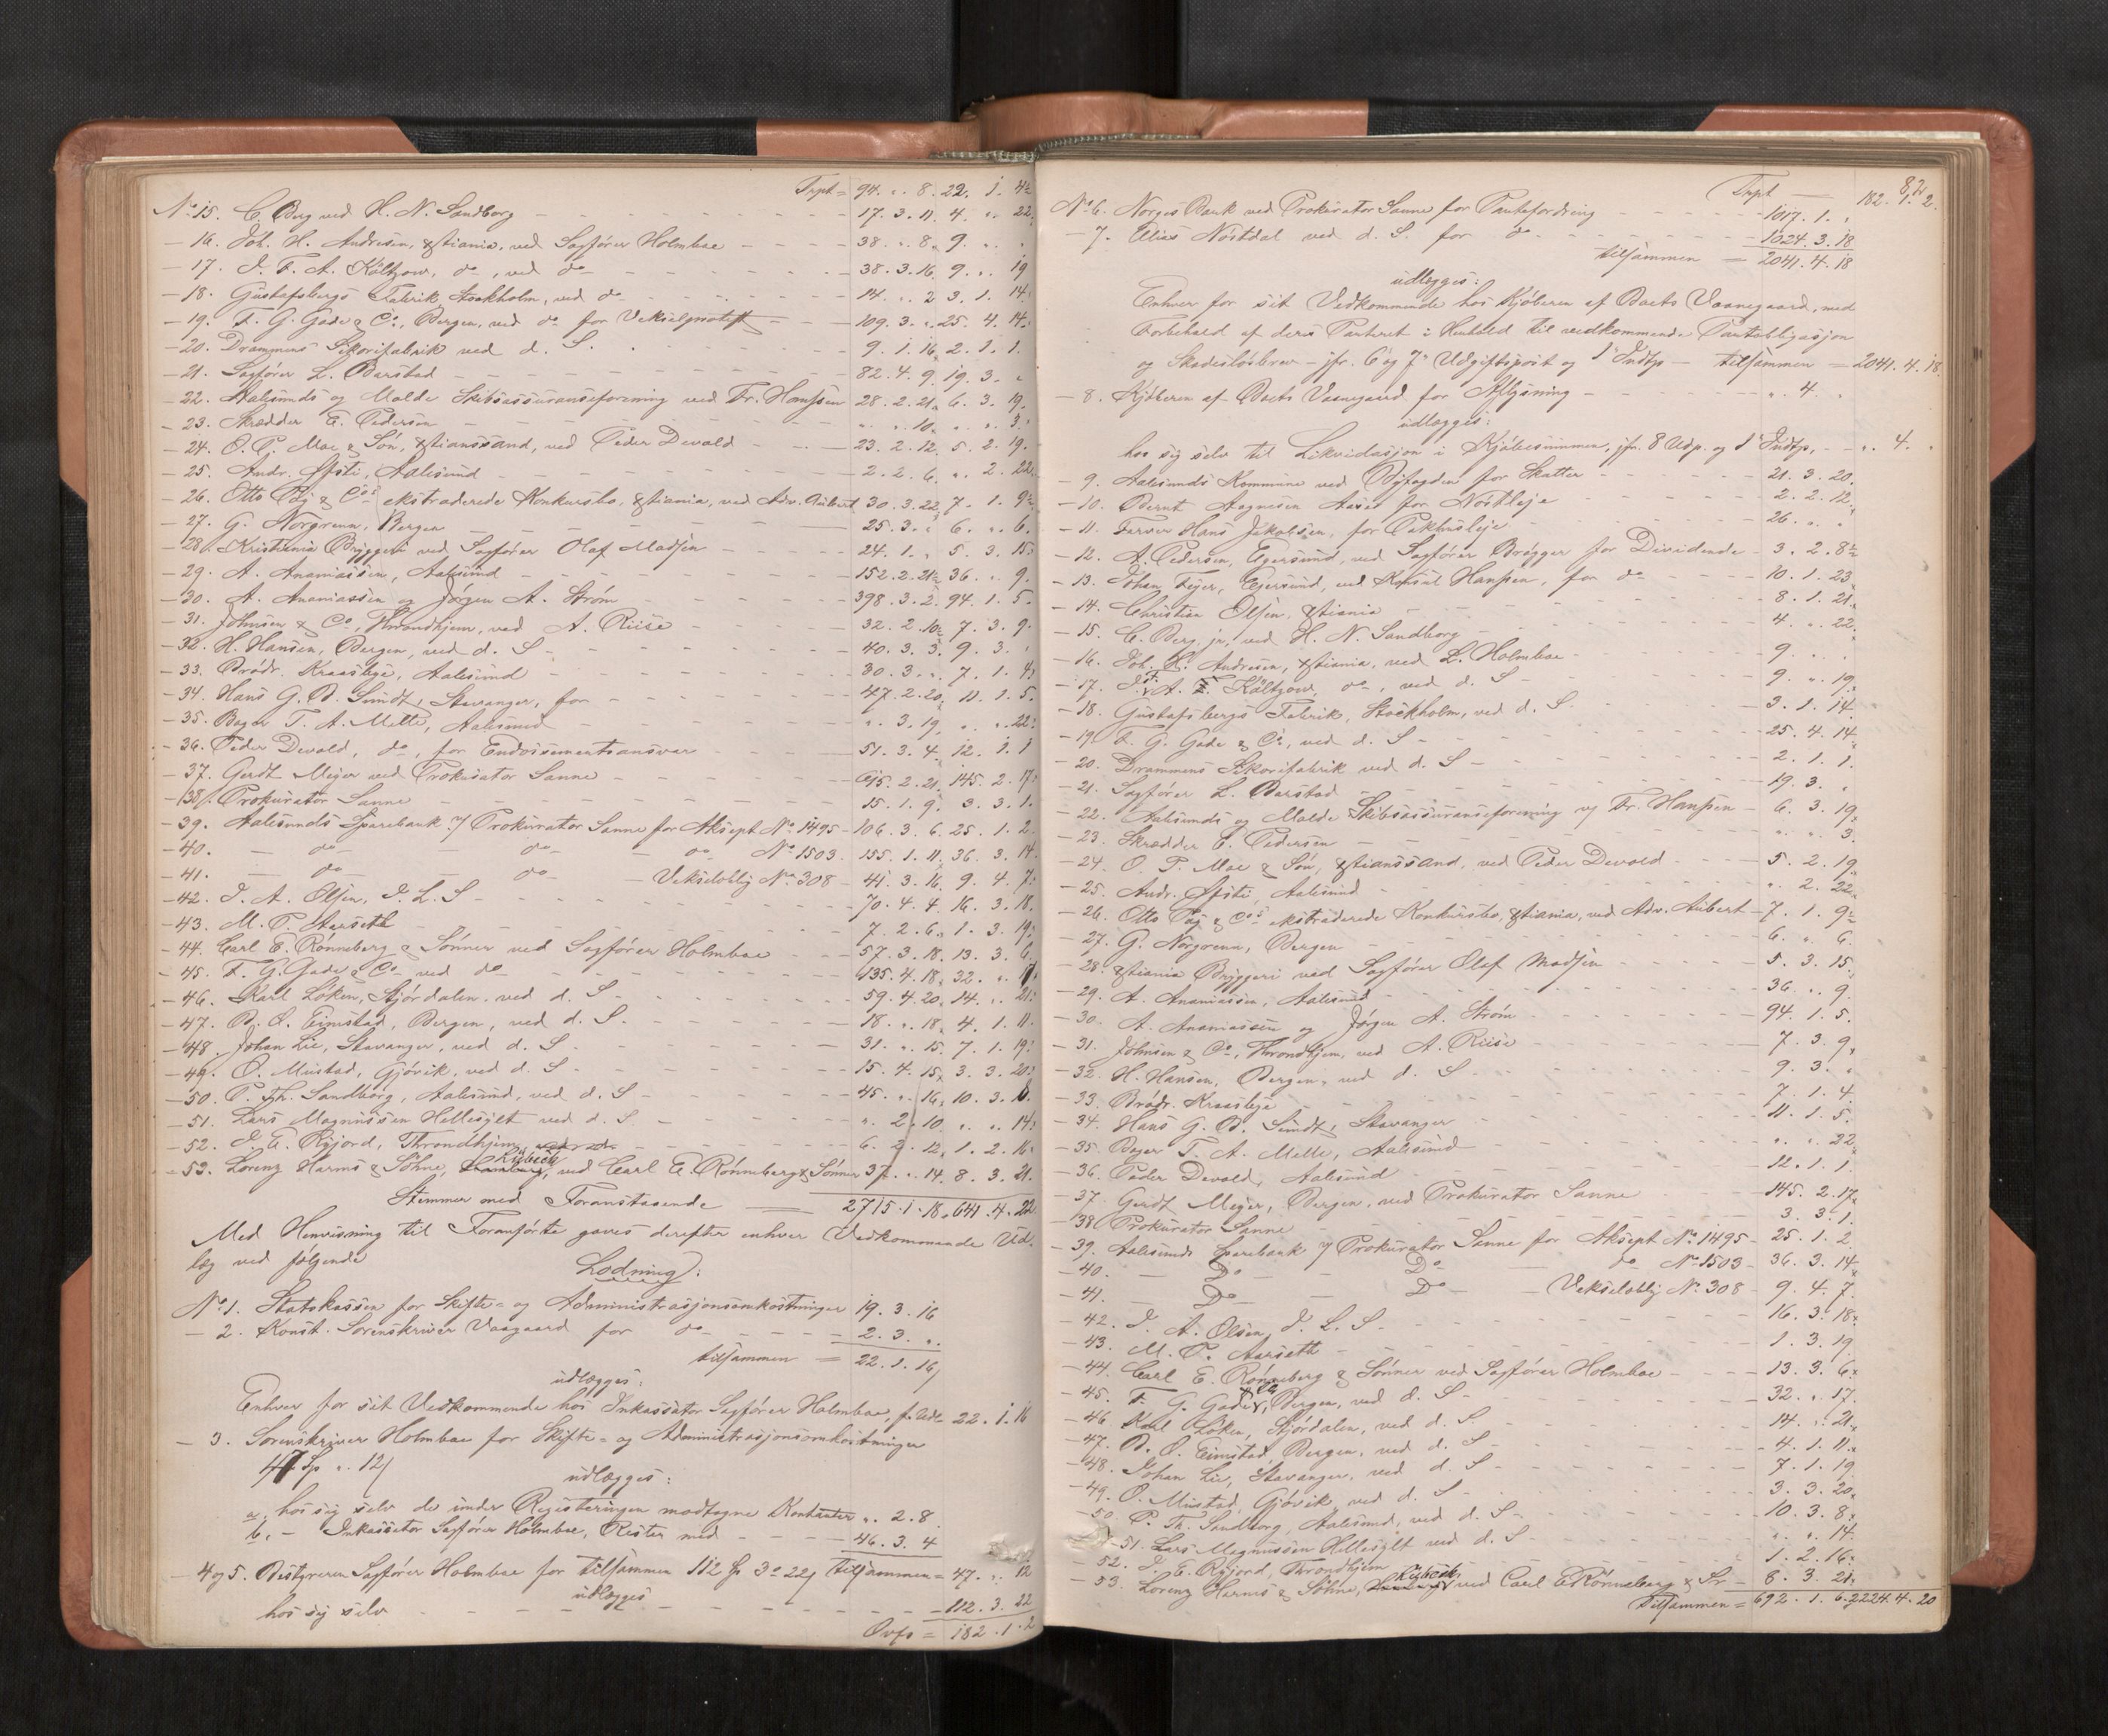 Trpt = 94. „. 8. 22. 1. 4½
No 15. C. Berg ved H. N. Sandborg - - - 17. 3. 11. 4. „. 22.
- 16. Joh. H. Andresen, Xstiania, ved Sagfører Holmboe - - - 38. „. 8. 9. „. „
- 17. J. F. A. Költzow, do, ved do - - - 38. 3. 16. 9. „. 19
- 18. Gustafsbergs Fabrik, Stockholm, ved do - - - 14. „. 2 3. 1. 14.
- 19. F. G. Gade & Co., Bergen, ved do for Vekselprotest - - 109. 3. „. 25. 4. 14.
- 20. Drammens Sikorifabrik ved d. S. - - - 9. 1. 16. 2. 1. 1.
- 21. Sagfører L. Barstad - - - 82. 4. 9. 19. 3. „
- 22. Aalesunds og Molde Skibsassuranseforening ved Fr. Hanssen 28. 2. 21. 6. 3. 19.
- 23. Skrædder E. Pedersen - - - „. „. 10. „. „. 3.
- 24. O. P. Moe & Søn, Xstianssand, ved Peder Devold - - - 23. 2. 12. 5. 2. 19.
- 25. Andr. Øfsti, Aalesund - - - 2. 2. 6. „. 2. 22.
- 26. Otto Paj & Co's ekstraderede Konkursbo, Xstiania, ved Adv. Aubert 30. 3. 22. 7. 1. 9½
- 27. G. Norgrenn, Bergen - - - 25. 3. „. 6. „. 6.
- 28. Kristiania Bryggeri ved Sagfører Olaf Madsen - - - 24. 1. „. 5. 3. 15.
- 29. A. Ananiassen, Aalesund - - - 152. 2. 21½ 36. „. 9.
- 30. A. Ananiassen og Jørgen A. Strøm - - - 398. 3. 2. 94. 1. 5.
- 31. Johnsen & Co, Throndhjem, ved A. Riise - - - 32. 2. 10½ 7. 3. 9.
- 32. H. Hansen, Bergen, ved d. S - - - 40. 3. 3. 9. 3. „
- 33. Brødr. Kraasbye, Aalesund - - - 30. 3. „. 7. 1. 4.
- 34. Hans G. B. Sundt, Stavanger, for - - - 47. 2. 20. 11. 1. 5.
- 35. Bager T. A. Melle, Aalesund - - - „. 3. 19. „. „. 22.
- 36. Peder Devold, do, for Endossementsansvar - - - 51. 3. 4. 12. 1. 1
- 37. Gerdt Meyer ved Prokurator Sanne - - - 615. 2. 21. 145. 2. 17.
- 38. Prokurator Sanne - - - 15. 1. 9. 3. 3. 1.
- 39. Aalesunds Sparebank v/ Prokurator Sanne for Aksept No 1495 - 106. 3. 6. 25. 1. 2.
- 40. - do - do - do No 1503. 155. 1. 11. 36. 3. 14.
- 41. - do - do - Vekseloblig No 308 - 41. 3. 16. 9. 4. 7.
- 42. J. A. Olsen, J. L. S - - - 70. 4. 4. 16. 3. 18.
- 43. M. P. Aarseth - - - 7. 2. 6. 1. 3. 19.
- 44. Carl E. Rønneberg & Sønner ved Sagfører Holmboe - - 57. 3. 18. 13. 3. 6.
- 45. F. G. Gade & Co ved do - - - 135. 4. 18. 32. „. 17.
- 46. Karl Løken, Stjørdalen, ved d. S - - - 59. 4. 20. 14. „. 21.
- 47. B. O. Eimstad, Bergen, ved d. S. - - - 18. „. 18. 4. 1. 11.
- 48. Johan Lie, Stavanger, ved d. S - - - 31. „. 15. 7. 1. 19.
- 49. O. Mustad, Gjøvik, ved d. S - - - 15. 4. 15. 3. 3. 20.
- 50. P. Th. Sandborg, Aalesund, ved d. S - - - 45. „. 16. 10. 3. 8.
- 51. Lars Magnussen Hellesylt ved d. S. - - - „. 2. 10. „. „. 14.
- 52. J. E. Ryjord, Throndhjem, ved do - - - 6. 2. 12. 1. 2. 16.
- 53. Lorenz Harms & Söhne, Hamburg, Lübeck, ved Carl E. Rønneberg & Sønner 37. „. 14. 8. 3. 21.
Stemmer med Foranstaaende — 2715. 1. 18. 641. 4. 22
Med Henvisning til Foranførte gaves derefter enhver Vedkommende Ud-
læg ved følgende
Lodning:
No 1. Statskassen for Skifte- og Administrasjonsomkostninger 19. 3. 16
- 2. Konst. Sorenskriver Vaagaard for do - - - 2. 3. „.
tilsammen = 22. 1. 16
udlægges:
Enhver for sit Vedkommende hos Inkassator Sagfører Holmboe, f. Udl. 22. 1. 16
- 3. Sorenskriver Holmboe for Skifte- og Administrasjonsomkostninger
47 Sp „. 12 ſ
udlægges:
a. hos sig selv de under Registeringen modtagne Kontanter „. 2. 8.
b. - Inkassator Sagfører Holmboe, Resten med - - - 46. 3. 4
tilsammen = 47. „. 12
- 4 og 5. Bestyreren Sagfører Holmboe for tilsammen 112 Sp 3 o 22 ſ
udlægges
hos sig selv - - - 112. 3. 22
Ovfs = 182. 1. 2
82.
Trpt — 182. 1. 2.
No 6. Norges Bank ved Prokurator Sanne for Pantefordring - - - 1017. 1. „
- 7. Elias Nøstdal ved d. S. for do - - - 1024. 3. 18
tilsammen = 2041. 4. 18
udlægges:
Enhver for sit Vedkommende hos Kjøberen af Boets Vaanegaard, med
Forbehold af deres Panteret i Henhold til vedkommende Panteobligasjon
og Skadesløsbrev - jfr. 6 og 7de Udgiftspost og 1ste Indtp - tilsammen = 2041. 4. 18.
- 8. Kjøberen af Boets Vaanegaard for Aflysning - - - „. 4. „
udlægges:
hos sig selv til Likvidasjon i Kjøbesummen, jfr. 8 Udp. og 1ste Indtp, - - „. 4. „
- 9. Aalesunds Kommune ved Byfogden for Skatter - - - 21. 3. 20.
- 10. Bernt Aagnesen Aases for Nøstleje - - - 2. 2. 12.
- 11. Farver Hans Jakobsen, for Pakhusleje - - - 26. „. „
- 12. A. Pedersen, Egersund, ved Sagfører Brøgger for Dividende - 3. 2. 8½
- 13. Johan Feyer, Ejersund, ved Konsul Hanssen, for do - - - 10. 1. 23.
- 14. Christian Olsen, Xstiania - - - 8. 1. 21.
- 15. C. Berg jr. ved H. N. Sandborg - - - 4. „. 22.
- 16. Joh. H. Andresen, Xstiania, ved L. Holmboe - - - 9. „. „
- 17. J. F. A. Költzow, do, ved d. S - - - 9. „. 19.
- 18. Gustafsbergs Fabrik, Stockholm, ved d. S. - - - 3. 1. 14.
- 19 F. G. Gade & Co, ved d. S - - - 25. 4. 14.
- 20. Drammens Sikorifabrik ved d. S - - - 2. 1. 1.
- 21. Sagfører L. Barstad - - - 19. 3. „
- 22. Aalesunds og Molde Skibsassuranseforening v/ Fr. Hanssen - 6. 3. 19.
- 23. Skrædder E. Pedersen - - - „. „. 3.
- 24. O. P. Moe & Søn, Xstianssand, ved Peder Devold - - - 5. 2. 19.
- 25. Andr. Øfsti, Aalesund - - - „. 2. 22.
- 26. Otto Paj & Co's ekstraderede Konkursbo, Xstiania, ved Adv. Aubert - 7. 1. 9½
- 27. G. Norgrenn, Bergen - - - 6. „. 6.
- 28. Xstiania Bryggeri ved Sagfører Olaf Madsen - - - 5. 3. 15.
- 29. A. Ananiassen, Aalesund - - - 36. „. 9.
- 30. A. Ananiassen og Jørgen A. Strøm - - - 94. 1. 5.
- 31. Johnsen & Co, Throndhjem, ved A. Riise - - - 7. 3. 9.
- 32. H. Hansen, Bergen, ved d. S - - - 9. 3. „
- 33. Brødr. Kraasbye - - - 7. 1. 4.
- 34. Hans G. B. Sundt, Stavanger - - - 11. 1. 5.
- 35. Bager T. A. Melle, Aalesund - - - „. „. 22.
- 36. Peder Devold, Aalesund - - - 12. 1. 1.
- 37. Gerdt Meyer, Bergen, ved Prokurator Sanne - - - 145. 2. 17.
- 38 Prokurator Sanne - - - 3. 3. 1.
- 39. Aalesunds Sparebank v/ Prokurator Sanne for Aksept No 1495 - 25. 1. 2
- 40. - Do - Do - do No 1503 - 36. 3. 14.
- 41. - Do - Do - Vekseloblig No 308 - 9. 4. 7.
- 42. J. A. Olsen, J. L. S. - - - 16. 3. 18.
- 43. M. P. Aarseth - - - 1. 3. 19.
- 44. Carl E. Rønneberg & Sønner ved Sagfører Holmboe - - - 13. 3. 6.
- 45. F. G. Gade & Co, Bergen, ved d. S - - - 32. „. 17.
- 46 Karl Løken, Stjørdalen, ved d. S. - - - 14. „. 21.
- 47. B. O. Eimstad, Bergen, ved d. S - - - 4. 1. 11.
- 48. Johan Lie, Stavanger, ved d. S - - - 7. 1. 19
- 49. O. Mustad, Gjøvik, ved d. S - - - 3. 3. 20.
- 50. P. Th. Sandborg, Aalesund, ved d. S - - - 10. 3. 8.
- 51. Lars Magnussen Hellesylt ved d. S - - - „. „. 14.
- 52. J. E. Ryjord, Throndhjem - - - 1. 2. 16.
- 53. Lorenz Harms & Söhne, Hamburg, Lübeck, ved Carl E Rønneberg & Sr - 8. 3. 21.
Tilsammen = 692. 1. 6½ 2224. 4. 20